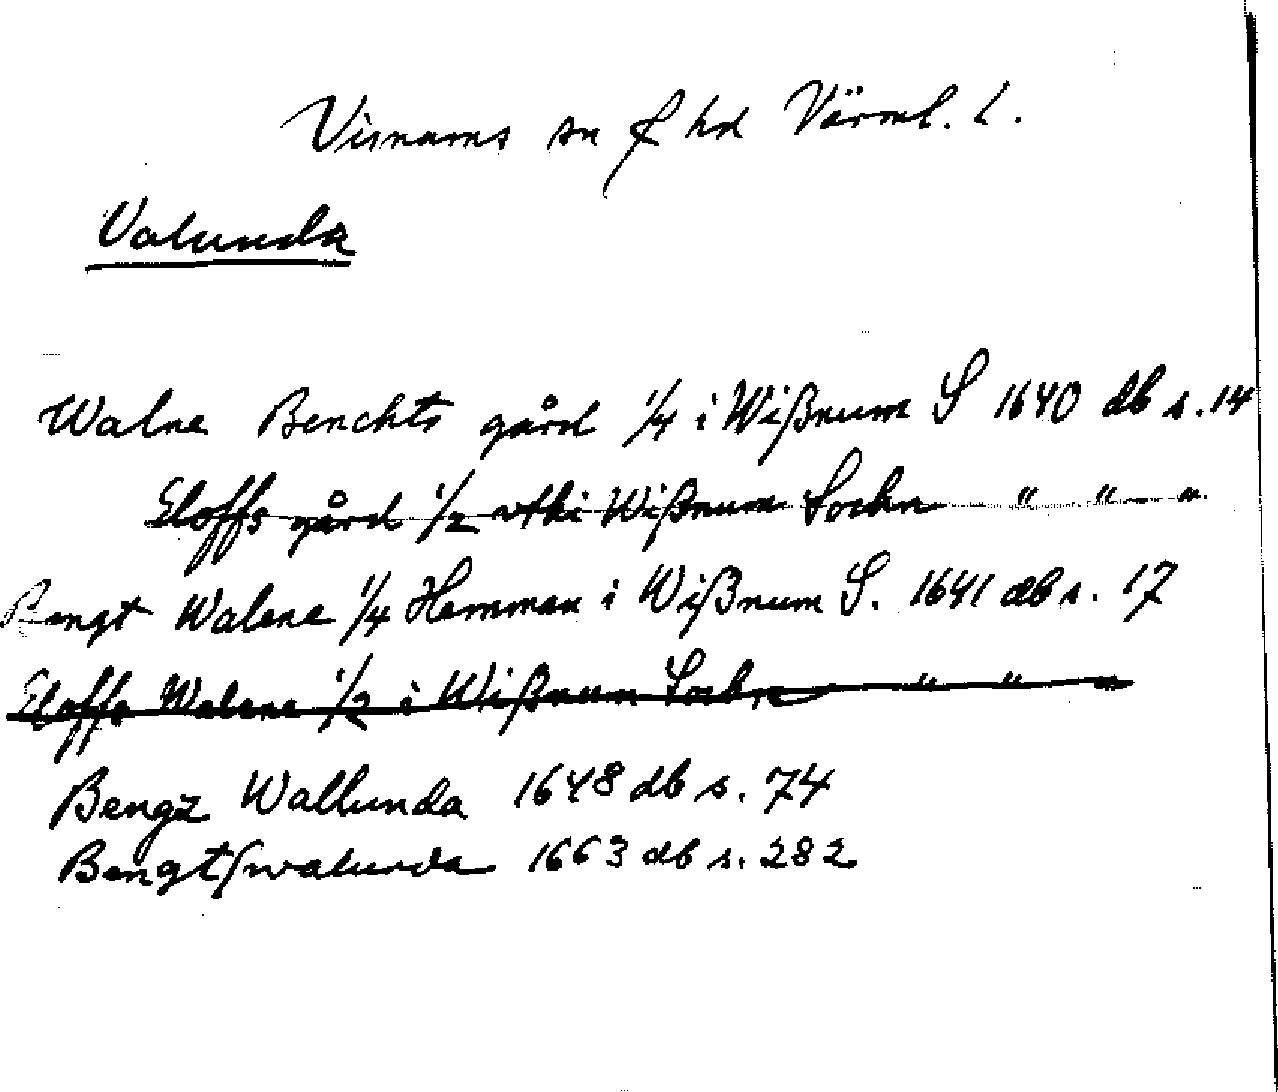 Visnums sn f hd Värml. l.
Valunda
Walne Benchts gård 1/4 i Wißnum S 1640 db s. 14
Eloffs gård 1/2 vthi Wißnum Sochn " " "
Bengt Walene 1/4 Hemman i Wißnum S. 1641 db s. 17
Eloffs Walene 1/2 i Wißnum Sochn " " "
Bengz Wallunda 1648 db s. 74
Bengt/walunda 1663 db s. 282